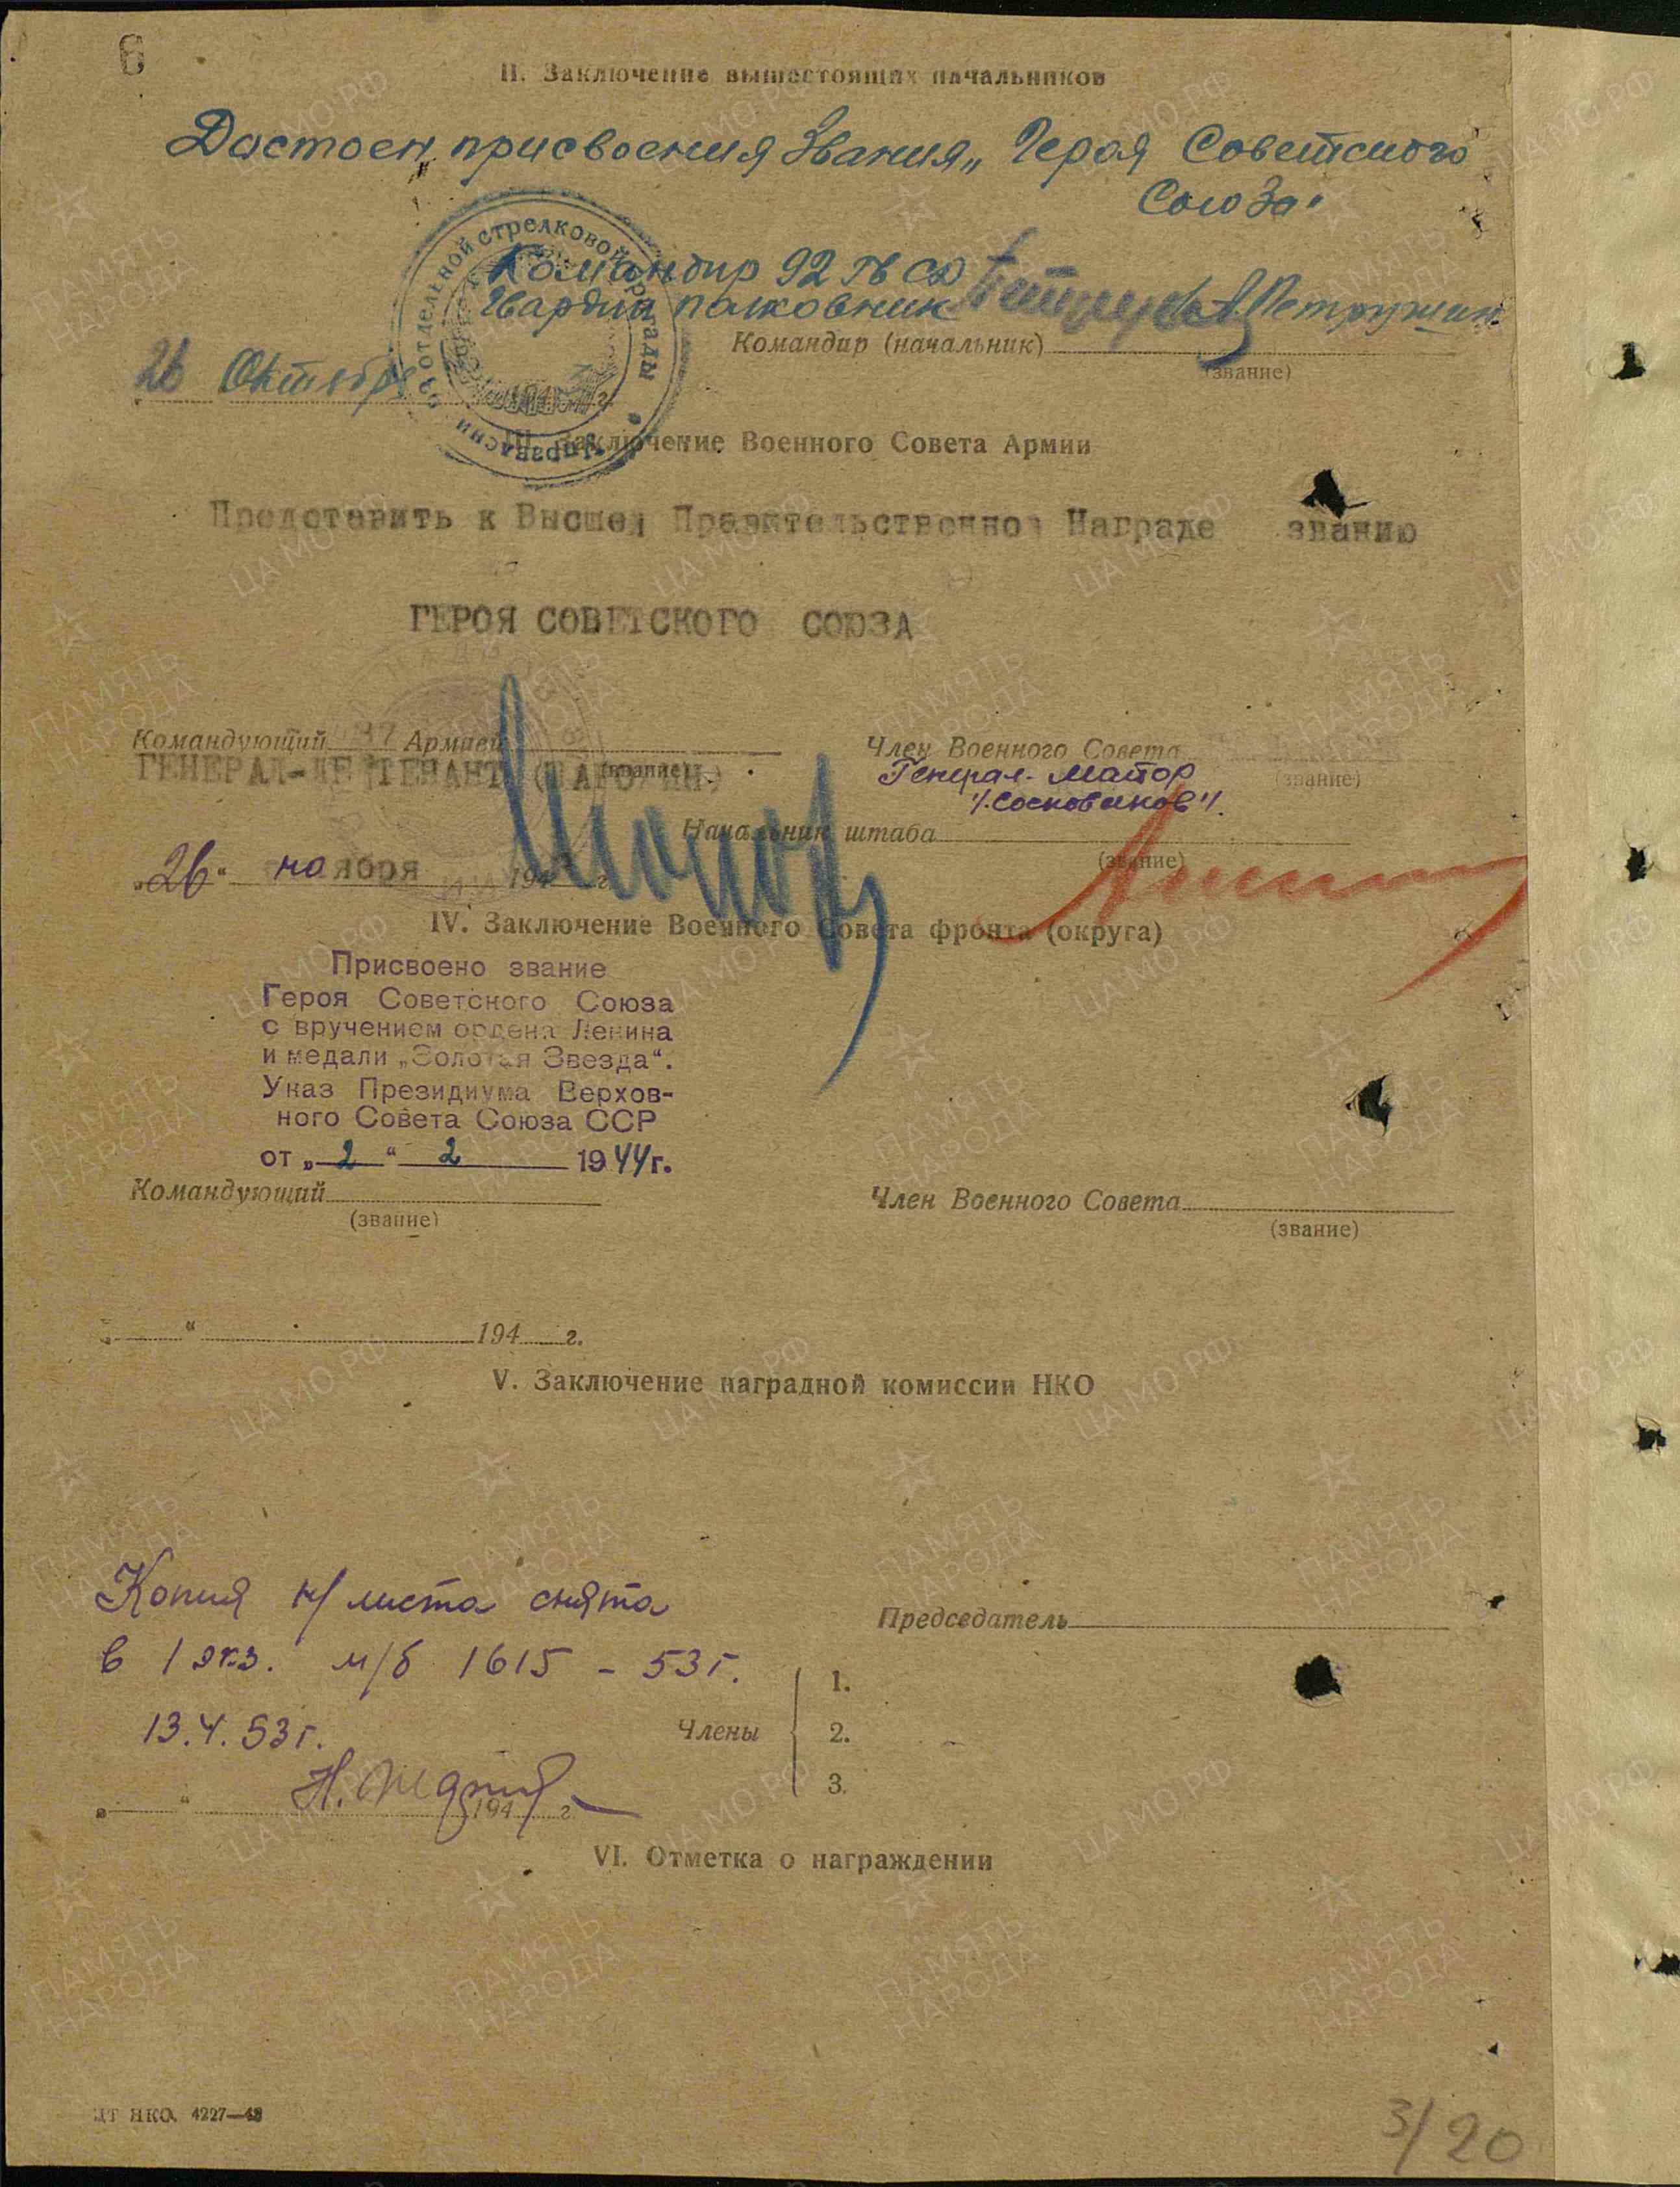 6
II. Заключение вышестоящих начальников
Достоен присвоения Звания „Героя Советского
Союза"
Командир 92 гв СД
Гвардии полковник Петрушин
Командир (начальник)
(звание)
26 Октября
отдельной стрелковой бригады
III. Заключение Военного Совета Армии
Представить к Высшей Правительственной Награде званию
ГЕРОЯ СОВЕТСКОГО СОЮЗА
Командующий 37 Армией
(звание)
ГЕНЕРАЛ-ЛЕЙТЕНАНТ (ШАРОХИН)
Член Военного Совета
(звание)
Генерал-Майор
/Сосновиков/.
Начальник штаба
(звание)
„26" ноября 194 г.
IV. Заключение Военного Совета фронта (округа)
Присвоено звание
Героя Советского Союза
с вручением ордена Ленина
и медали „Золотая Звезда".
Указ Президиума Верхов-
ного Совета Союза ССР
от „2" 2 1944г.
Командующий
(звание)
Член Военного Совета
(звание)
„ " 194 г.
V. Заключение наградной комиссии НКО
Копия н/листа снята
в 1 экз. м/б 1615 - 53г.
13.4.53г.
Председатель
Члены
1.
2.
3.
„ " 194 г.
VI. Отметка о награждении
4227—43
3/20
ПАМЯТЬ НАРОДА
ЦА МО РФ